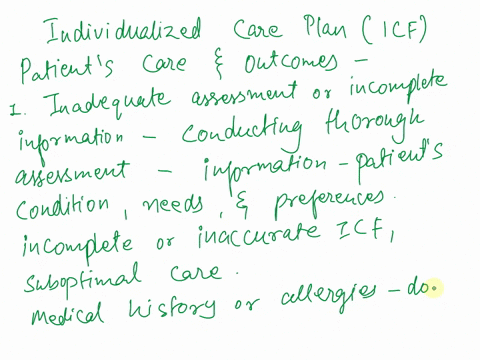 Individualized Care Plan (ICF)
Patient's Care & outcomes -
1. Inadequate assessment or incomplete
information - conducting thorough
assessment - information - patient's
condition, needs, & preferences.
incomplete or inaccurate ICF,
suboptimal care.
Medical history or allergies - do